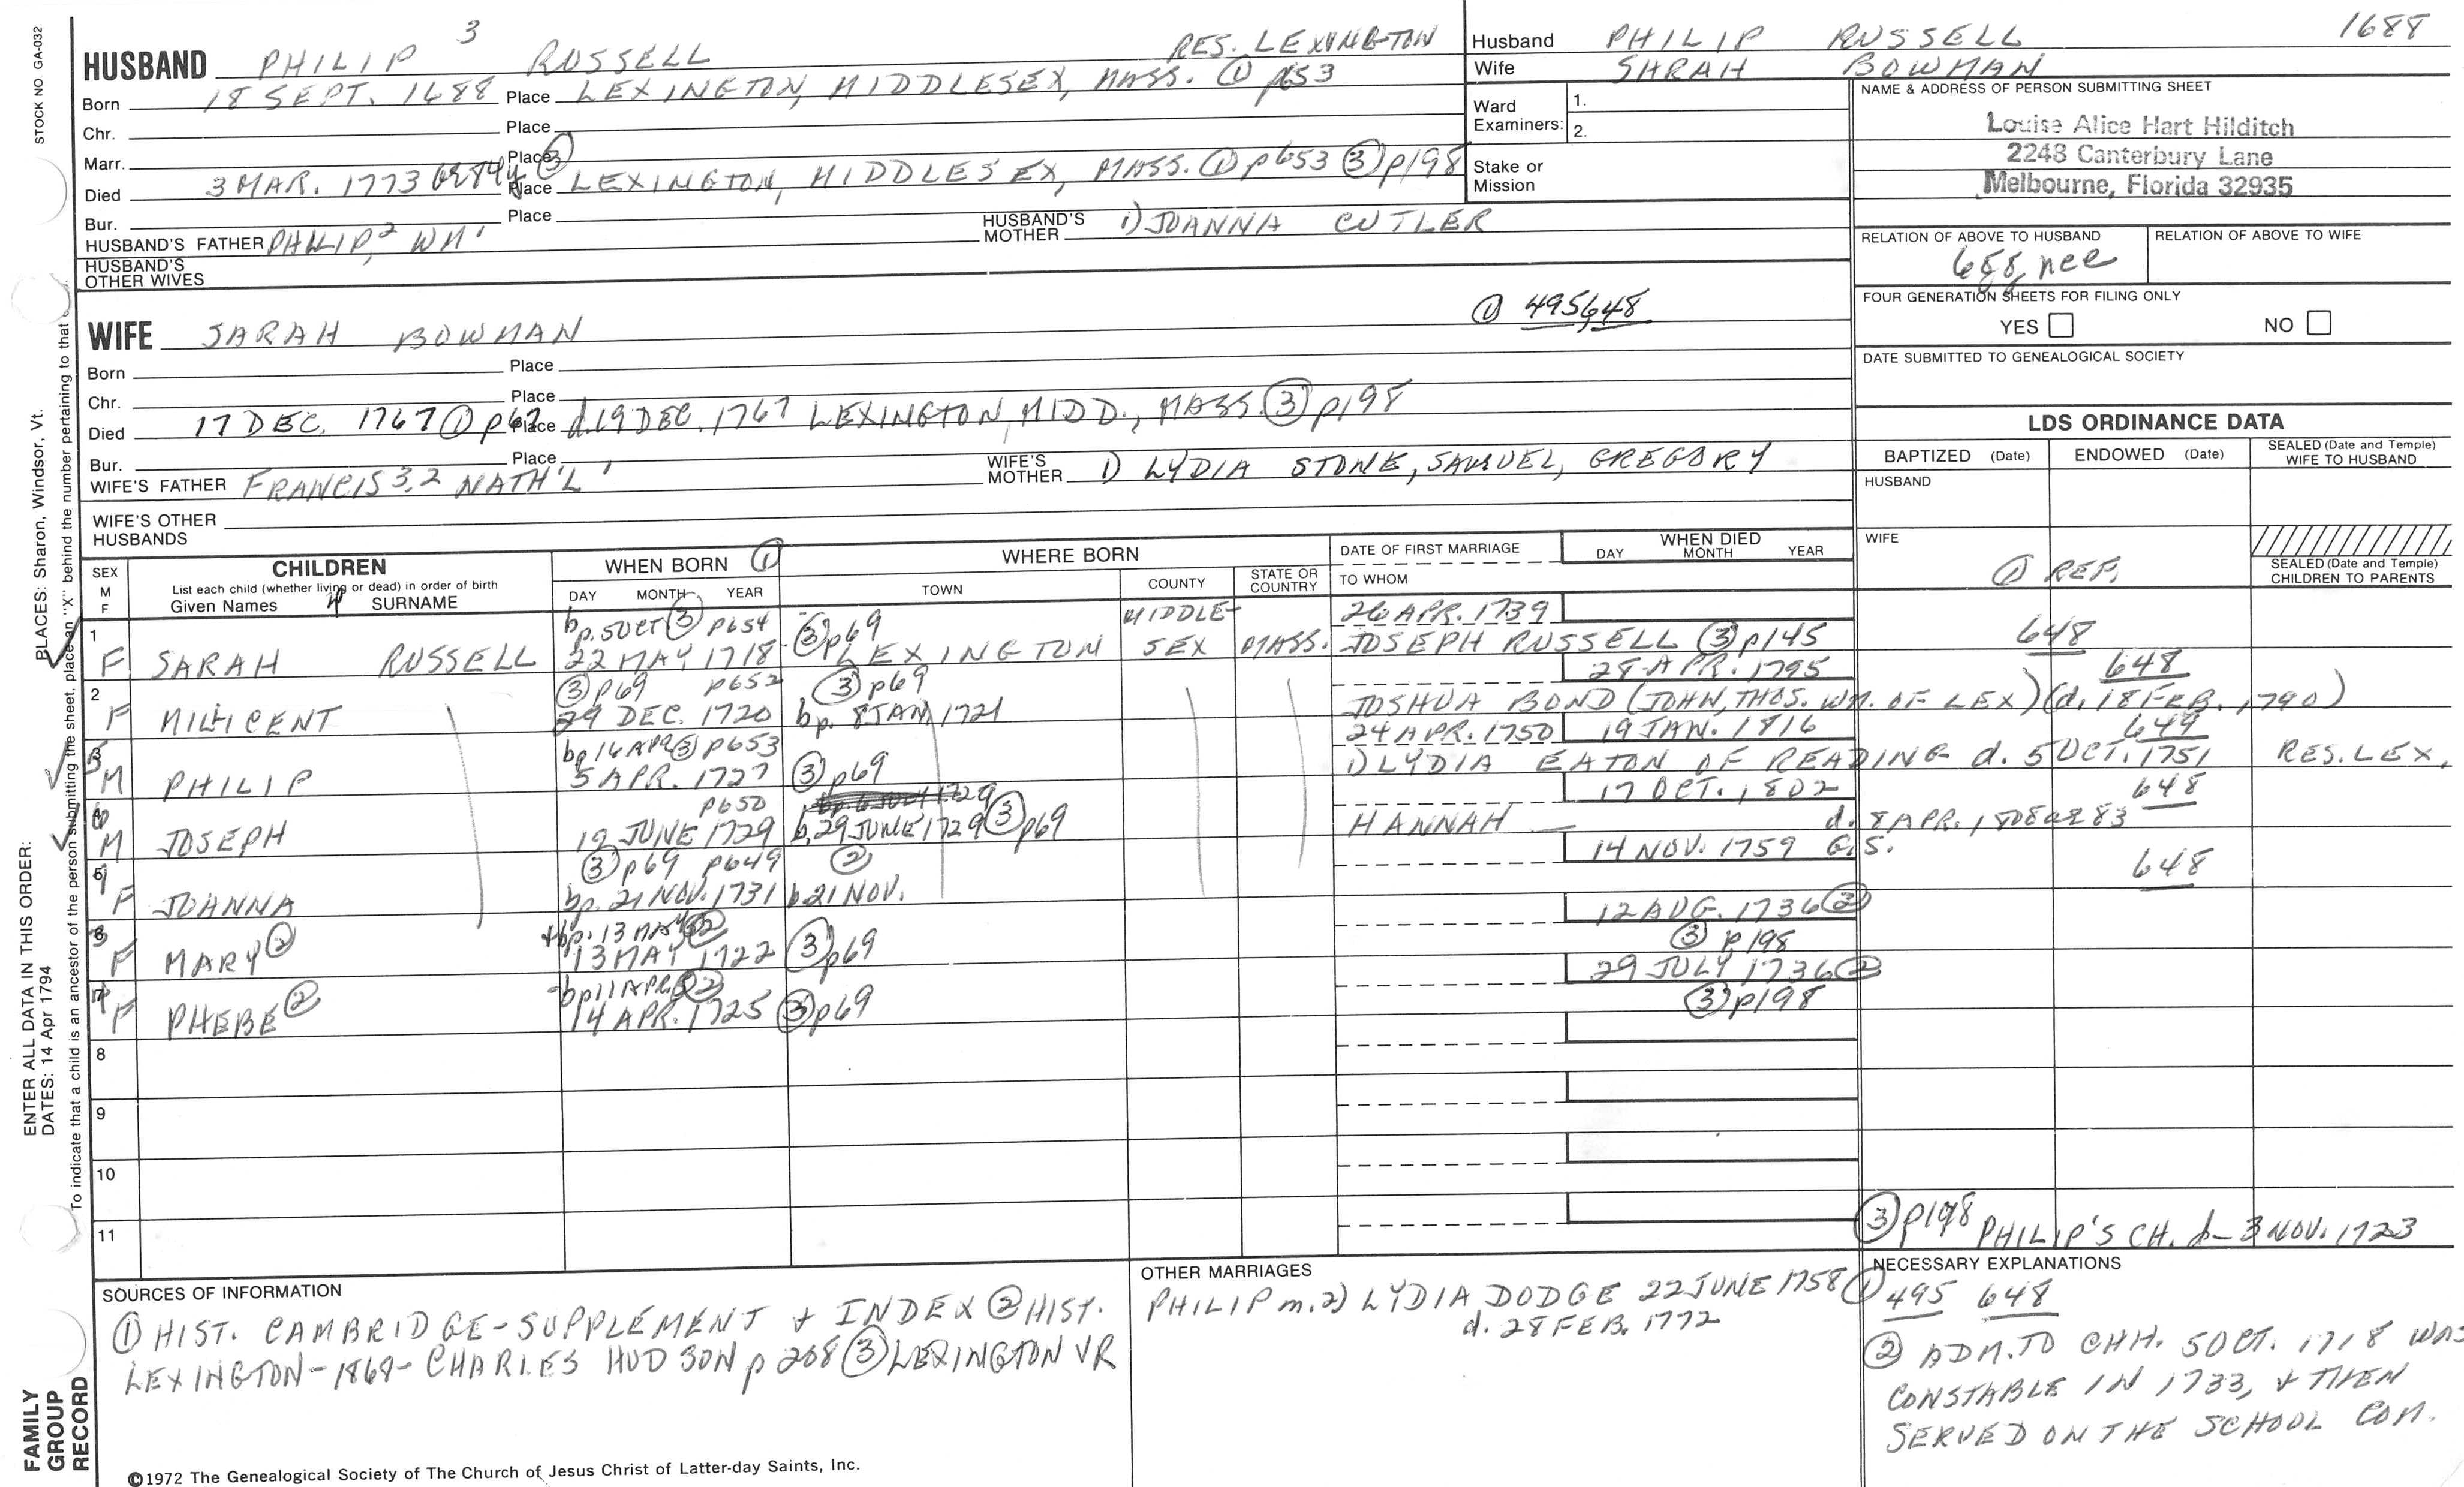 STOCK NO GA-032
PLACES: Sharon, Windsor, Vt.
ENTER ALL DATA IN THIS ORDER:
DATES: 14 Apr 1794
To indicate that a child is an ancestor of the person submitting the sheet, place an "X" behind the number pertaining to that
FAMILY GROUP RECORD
HUSBAND PHILIP 3 RUSSELL RES. LEXINGTON
Born 18 SEPT. 1688 Place LEXINGTON, MIDDLESEX, MASS. ① p653
Chr. Place
Marr. Place ③
Died 3 MAR. 1773 Place LEXINGTON, MIDDLESEX, MASS. ① p653 ③ p198
Bur. Place
HUSBAND'S FATHER PHILIP,2 WM1 HUSBAND'S MOTHER 1) JOANNA CUTLER
HUSBAND'S OTHER WIVES
① 495, 648
WIFE SARAH BOWMAN
Born Place
Chr. Place
Died 17 DEC. 1767 ① Place d. 19 DEC. 1767 LEXINGTON, MIDD., MASS. ③ p198
Bur. Place
WIFE'S FATHER FRANCIS 3,2 NATH'L1 WIFE'S MOTHER 1) LYDIA STONE, SAMUEL, GREGORY
WIFE'S OTHER HUSBANDS
Husband PHILIP RUSSELL 1688
Wife SARAH BOWMAN
Ward Examiners: 1.
2.
Stake or Mission
NAME & ADDRESS OF PERSON SUBMITTING SHEET
Louise Alice Hart Hilditch
2248 Canterbury Lane
Melbourne, Florida 32935
RELATION OF ABOVE TO HUSBAND RELATION OF ABOVE TO WIFE
FOUR GENERATION SHEETS FOR FILING ONLY
YES NO
DATE SUBMITTED TO GENEALOGICAL SOCIETY
LDS ORDINANCE DATA
BAPTIZED (Date) ENDOWED (Date) SEALED (Date and Temple) WIFE TO HUSBAND
HUSBAND
WIFE
① REF.
SEALED (Date and Temple) CHILDREN TO PARENTS
SEX M F CHILDREN WHEN BORN ① WHERE BORN DATE OF FIRST MARRIAGE WHEN DIED
List each child (whether living or dead) in order of birth
Given Names 4 SURNAME DAY MONTH YEAR TOWN COUNTY STATE OR COUNTRY TO WHOM DAY MONTH YEAR
1 bp. 5 OCT ③ p654 ③ p69 MIDDLE- 26 APR. 1739
F SARAH RUSSELL 22 MAY 1718 LEXINGTON SEX MASS. JOSEPH RUSSELL ③ p145 648
2 ③ p69 p652 ③ p69 28 APR. 1795 648
F MILLICENT 29 DEC. 1720 bp. 8 JAN 1721 JOSHUA BOND (JOHN, THOS. WM. OF LEX) (d. 18 FEB. 1790)
bp 16 APR ③ p653 24 APR. 1750 19 JAN. 1816 649
M PHILIP 5 APR. 1727 ③ p69 1) LYDIA EATON OF READING d. 5 OCT. 1751 RES. LEX.
p650 17 OCT. 1802 648
M JOSEPH 19 JUNE 1729 b. 29 JUNE 1729 ③ p69 HANNAH
③ p69 p649 ② 14 NOV. 1759 G.S. 648
F JOANNA bp. 21 NOV. 1731 b. 21 NOV.
bp. 13 MAY ② 12 AUG. 1736 ②
F MARY ② 13 MAY 1722 ③ p69 ③ p198
bp 11 APR. ② 29 JULY 1736 ②
F PHEBE ② 14 APR. 1725 ③ p69 ③ p198
8
9
10
11
③ p198 PHILIP'S CH. d- 3 NOV. 1723
SOURCES OF INFORMATION
① HIST. CAMBRIDGE-SUPPLEMENT + INDEX ② HIST.
LEXINGTON-1868- CHARLES HUDSON p 208 ③ LEXINGTON VR
OTHER MARRIAGES
PHILIP m. 2) LYDIA DODGE 22 JUNE 1758 ①
d. 28 FEB. 1772
NECESSARY EXPLANATIONS
495 648
② ADM. TO CHH. 5 OCT. 1718 WAS
CONSTABLE IN 1733, + THEN
SERVED ON THE SCHOOL COM.
©1972 The Genealogical Society of The Church of Jesus Christ of Latter-day Saints, Inc.